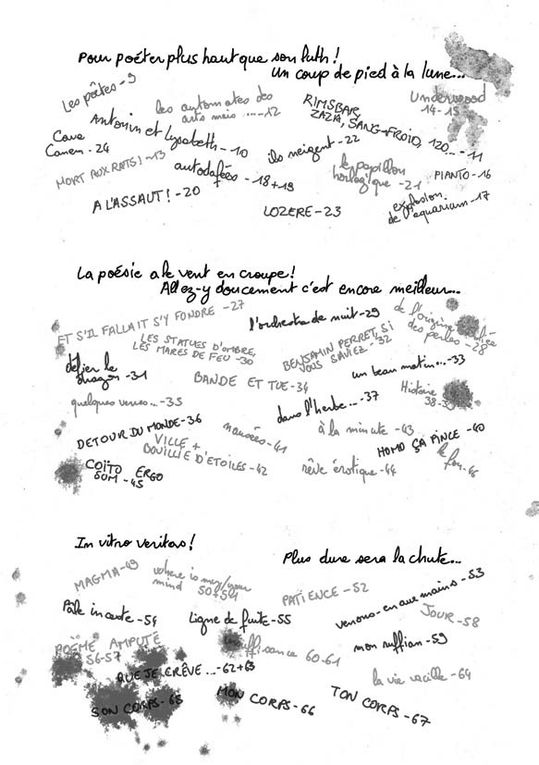 Pour poéter plus haut que son luth !
Un coup de pied à la lune...
Les poètes - 9
les automates des
arts meio ..... - 12
RIMSBAR,
ZAZA, SANG-FROID, 120... - 11
Underwood
14 - 15
Cave
Canem - 24
Antonin et Lysabeth - 10
ils neigent - 22
MORT AUX RATS ! - 13
autodafées - 18+19
le papillon
horlogique - 21
PIANTO - 16
A L'ASSAUT ! - 20
LOZERE - 23
explosion
de l'aquarium - 17
La poésie a le vent en croupe !
Allez-y doucement c'est encore meilleur...
ET S'IL FALLAIT S'Y FONDRE - 27
l'orchestre de nuit - 29
de l'origine
des perles - 28
LES STATUES D'OMBRE,
LES MARES DE FEU - 30
BENJAMIN PERRET, SI
VOUS SAVIEZ - 32
un beau matin... - 33
défier le
dragon - 31
BANDE ET TUE - 34
Histoire
38-39
quelques verves... - 35
dans l'herbe... - 37
DETOUR DU MONDE - 36
nausées - 41
à la minute - 43
HOMO ÇA PINCE - 40
VILLE +
BOUILLIE D'ETOILES - 42
COÏTO ERGO
SUM - 45
rêve érotique - 44
le fou - 46
In vitro veritas !
Plus dure sera la chute...
MAGMA - 49
where is my/your
mind 50+51
PATIENCE - 52
venons-en aux mains - 53
Pâle inceste - 54
Ligne de fuite - 55
JOUR - 58
POÈME AMPUTÉ
56-57
suffisance 60-61
mon ruffian - 59
QUE JE CRÊVE ... - 62+63
la vie vacille - 64
SON CORPS - 65
MON CORPS - 66
TON CORPS - 67